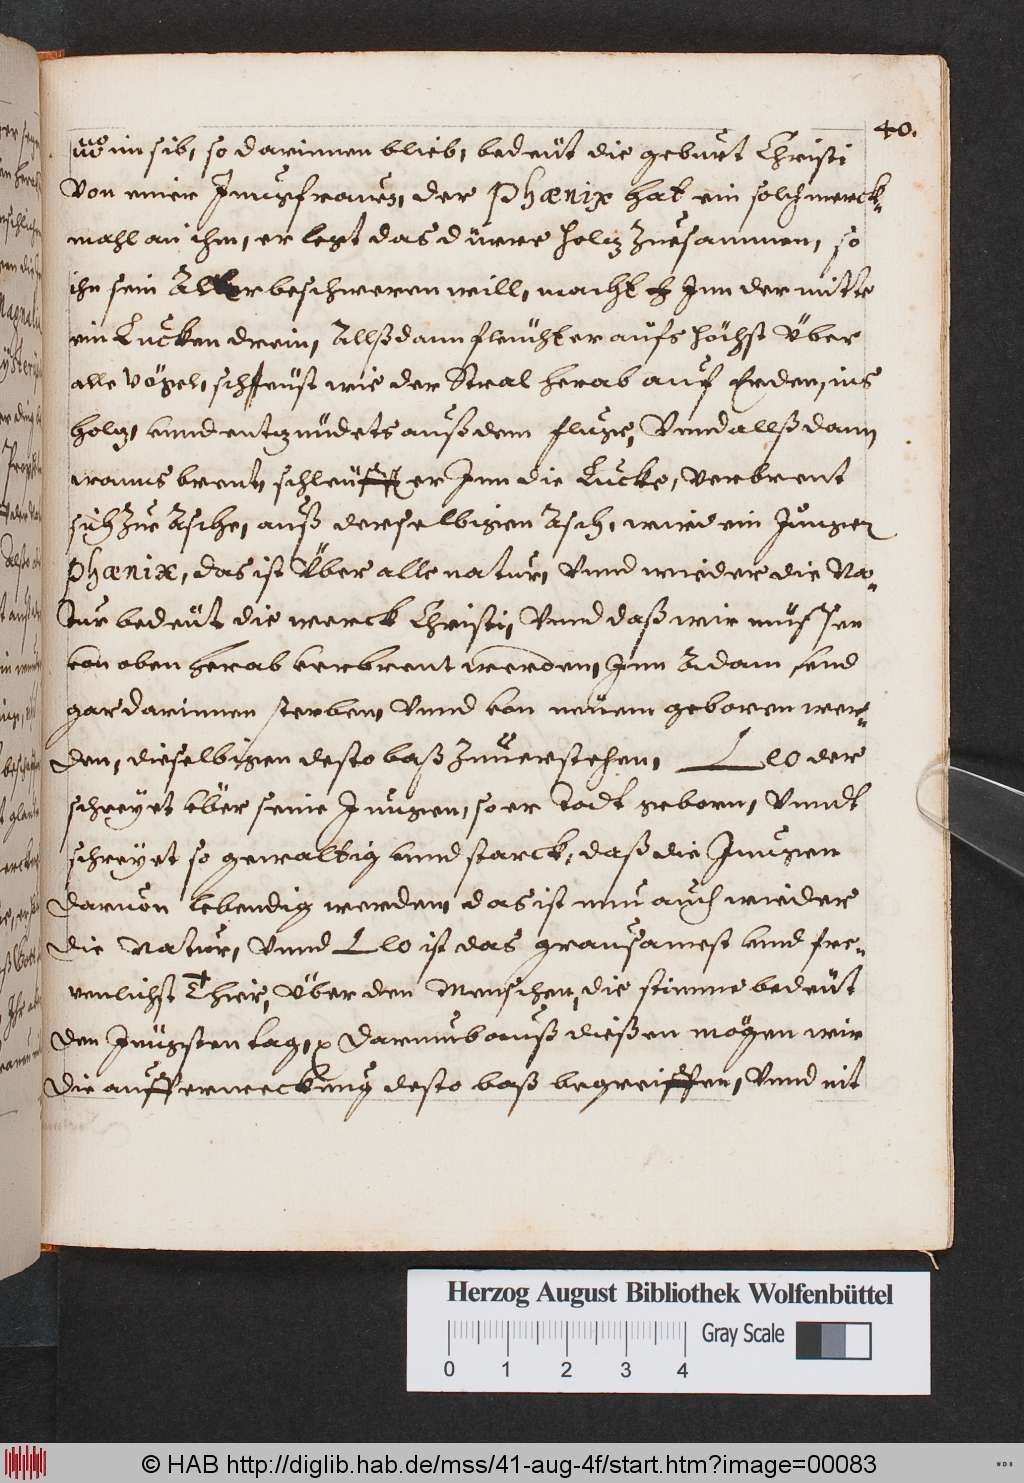 40.
im sib, so darinnen blieb, bedeüt die geburt Christi
Von einer Jungfrauen, der Phœnix hat ein solch merck-
mahl an ihm, er legt das dürre holtz Zuesammen, so
ihn sein Alter beschweren will, macht Jnn der mitte
ein Lucken drein, Allßdann fleücht er aufs höchst Über
alle Vögel, scheüst wie der Stral herab auf Erden, ins
holtz, unnd entzündets auß dem fluge, Vnnd allß dann
wanns brent, schleüfft er Jnn die Lucke, verbrent
sich Zue Asche, auß derselbigen Asch, wird ein Junger
Phœnix, das ist Über alle natur, Vnnd wieder die Na-
tur bedeüt die werck Christi, Vnnd daß wir müssen
von oben herab verbrent werden, Jnn Adam, und
gar darinnen sterben, Vnnd von neüem geboren wer-
den, dieselbigen desto baß Zuuerstehen, Leo der
schreyet über seine Jungen, so er Todt geborn, Vnndt
schreyet so gewaltig unnd starck, daß die Jungen
daruon lebendig werden, das ist nun auch wieder
die Natur, Vnnd Leo ist das grausamest unnd fre-
uenlichst Thier, Über den Menschen, die stimme bedeüt
den Jüngsten tag, Darumb auß dießen mögen wir
die aufferweckung desto baß begreiffen, Vnnd nit
Herzog August Bibliothek Wolfenbüttel
Gray Scale
0 1 2 3 4
© HAB http://diglib.hab.de/mss/41-aug-4f/start.htm?image=00083